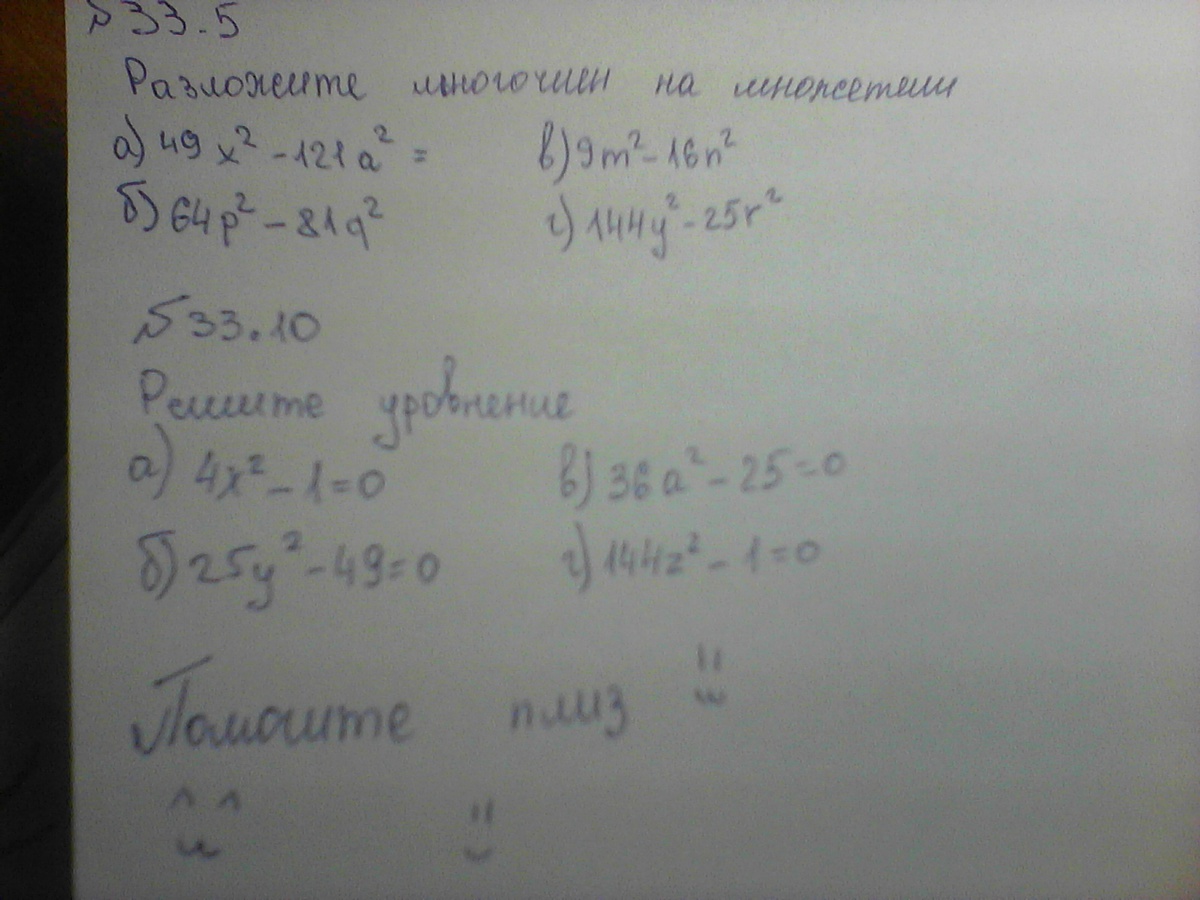 №33.5
Разложите многочлен на множетели
а) 49x² - 121a² = в) 9m² - 16n²
б) 64p² - 81q² г) 144y² - 25r²
№33.10
Решите уровнение
а) 4x² - 1 = 0 в) 36a² - 25 = 0
б) 25y² - 49 = 0 г) 144z² - 1 = 0
Помогите плиз